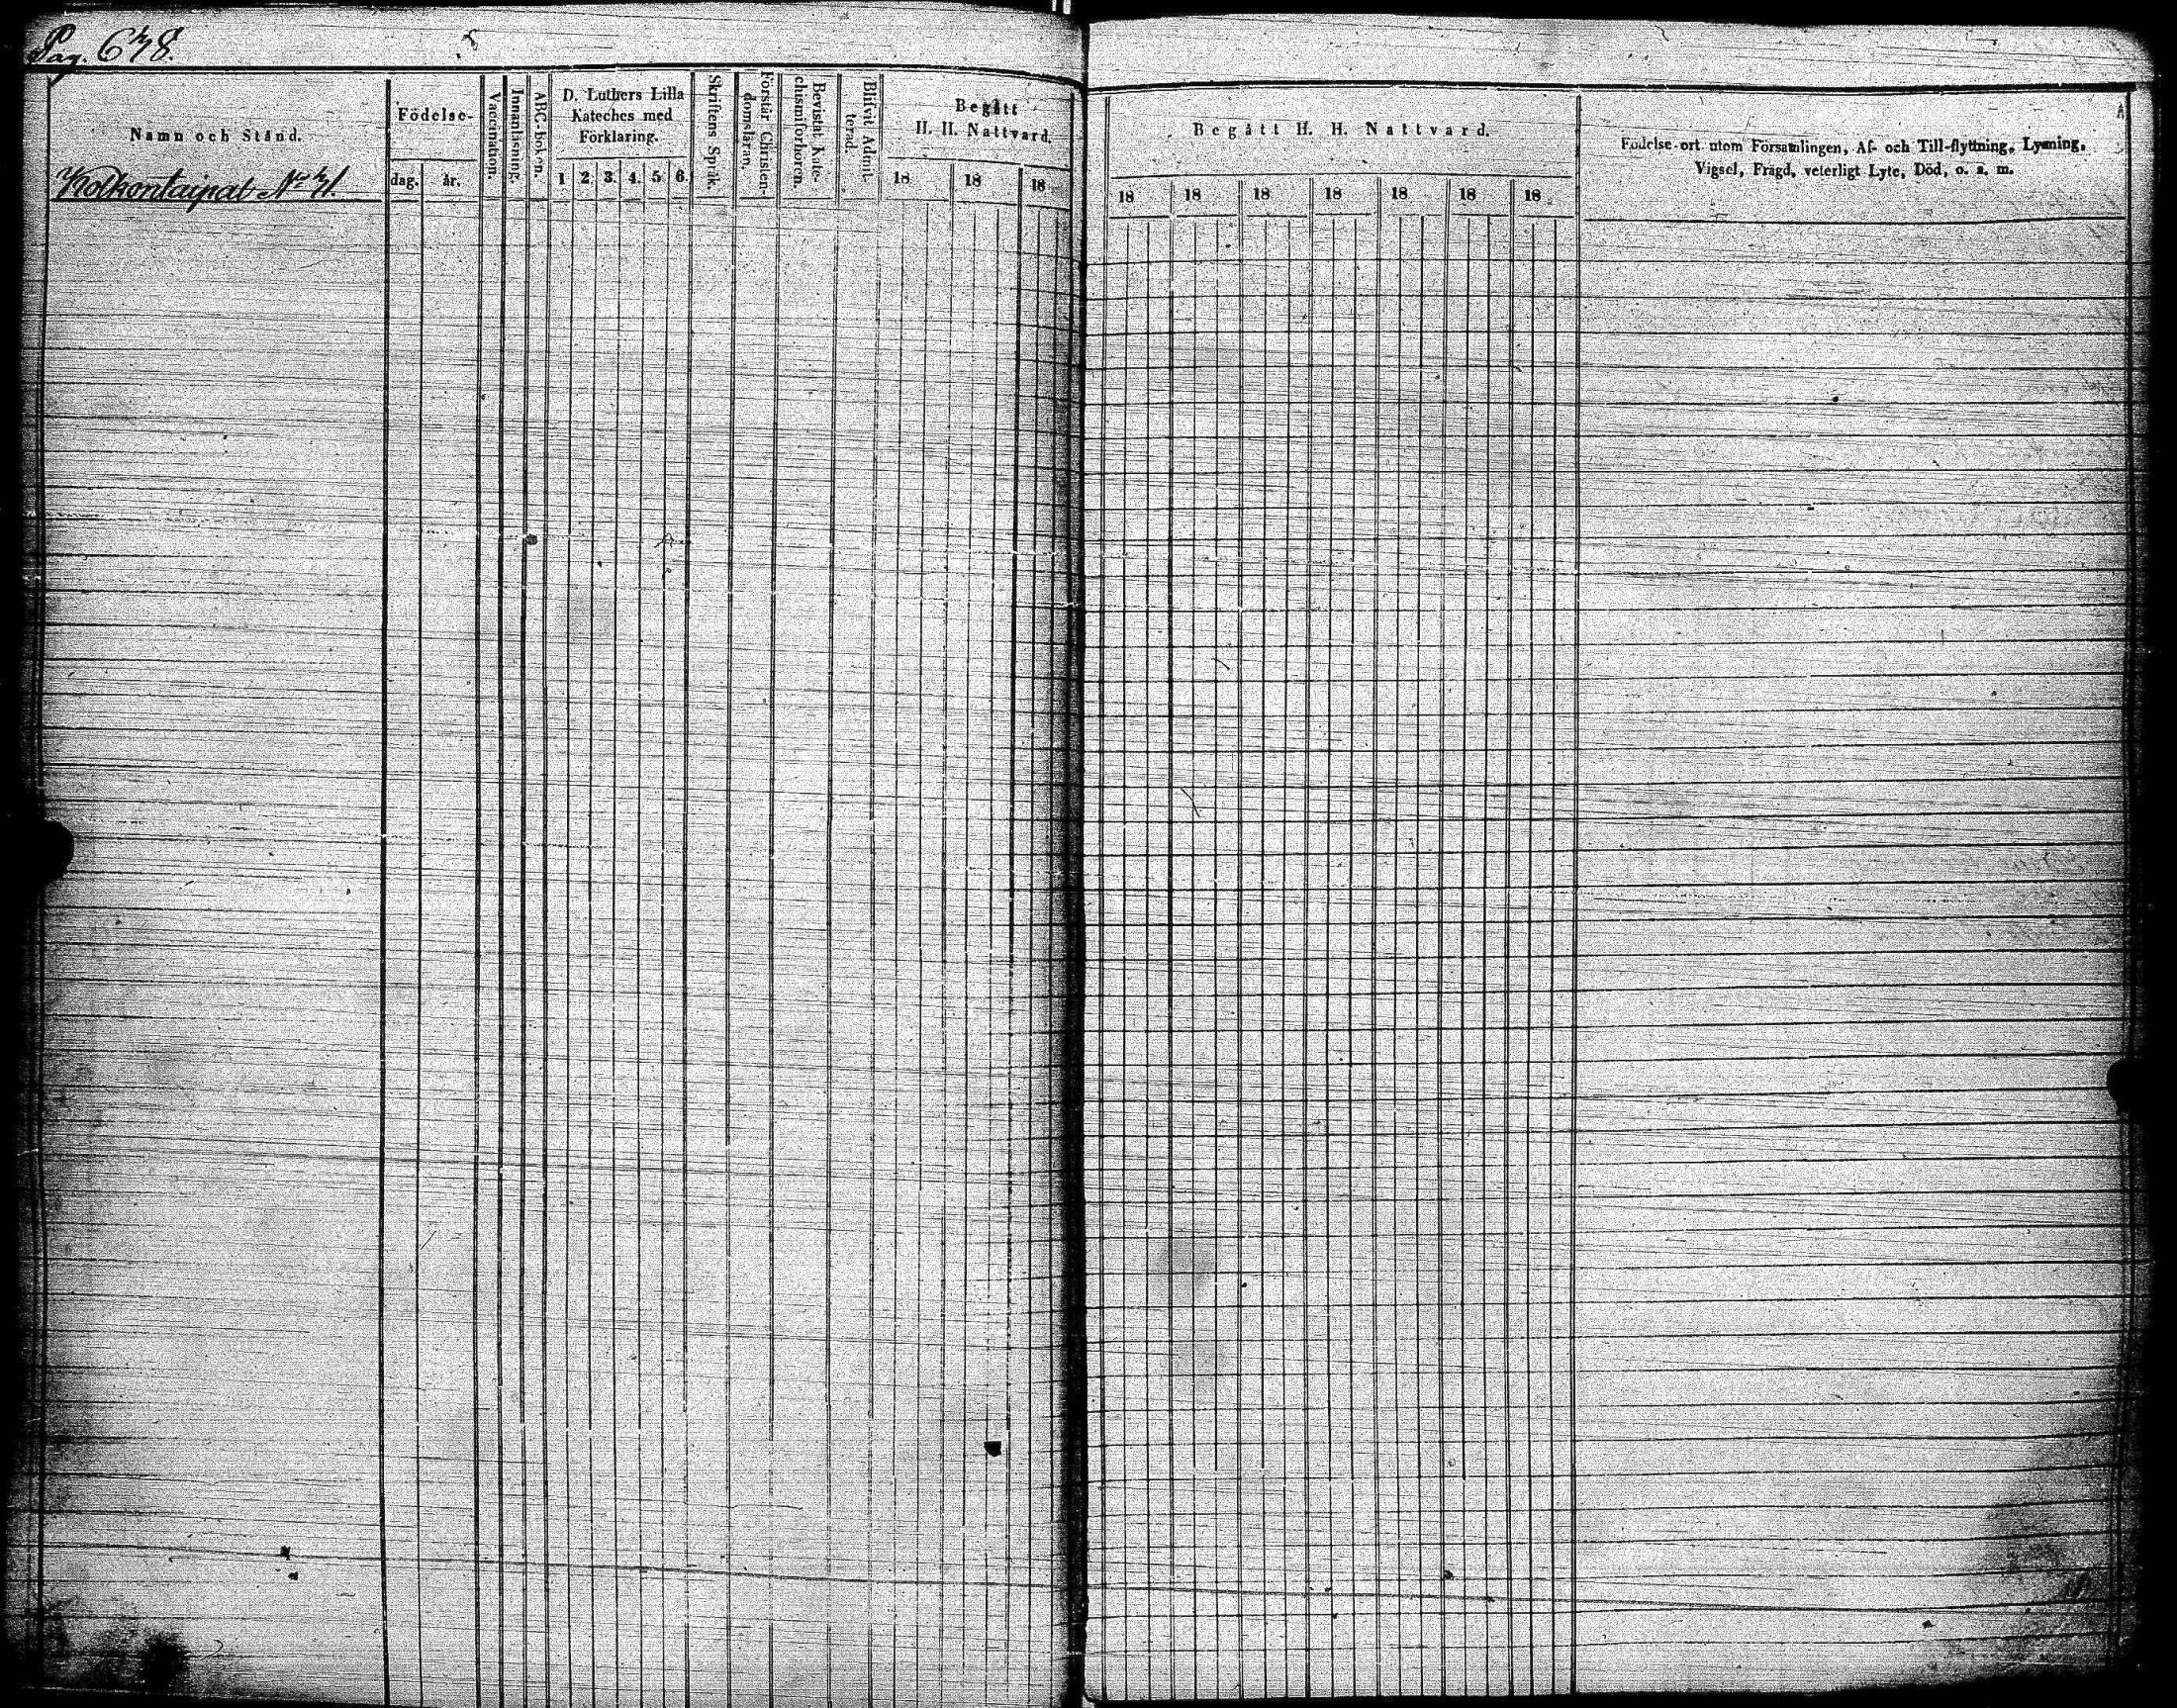 Pag. 678.
Namn och Stånd.
Kolkontaipal No 71.
Födelse-
dag. år.
Vaccination.
Innanläsning.
ABC-boken.
D. Luthers Lilla
Kateches med
Förklaring.
1 2. 3. 4. 5. 6.
Skriftens Språk.
Förstår Christen-
domsläran.
Bevistat Kate-
chismiförhören.
Blifvit Admit-
terad.
Begått
H. H. Nattvard.
18 18 18
Begått H. H. Nattvard.
18 18 18 18 18 18 18
Födelse-ort utom Församlingen, Af- och Till-flyttning, Lysning,
Vigsel, Frägd, veterligt Lyte, Död, o. s. m.